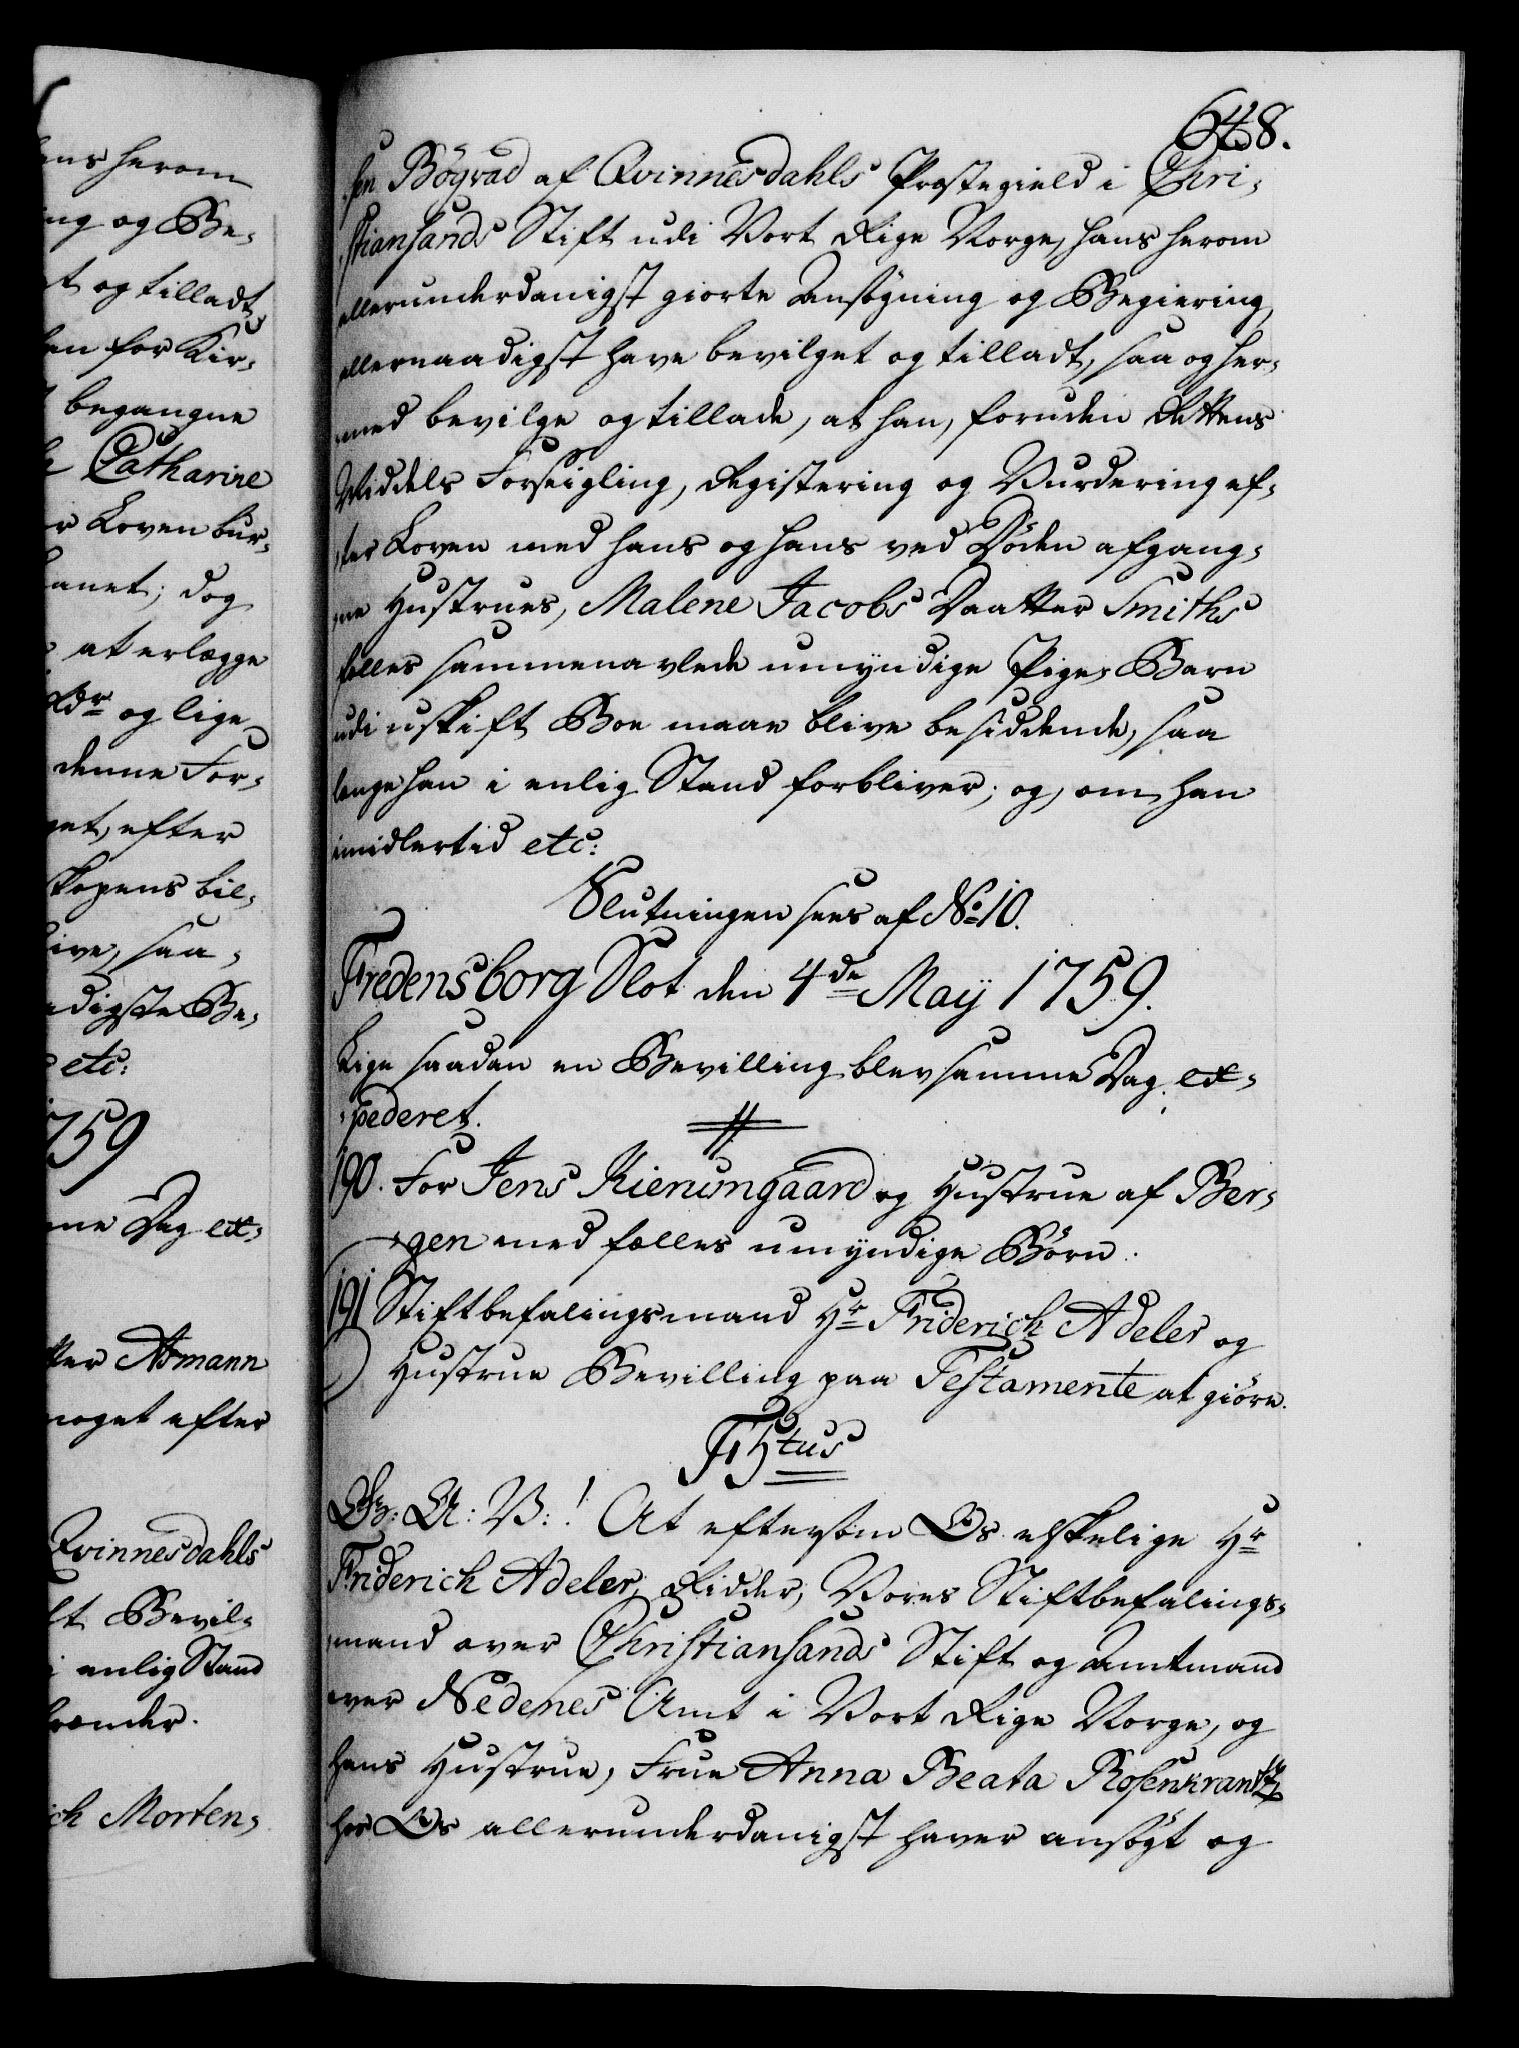 648.
sen Bögvad af Qvinnesdahls Præstegield i Chri-
stiansands Stift udi Vort Rige Norge, hans herom
allerunderdanigst giorte Ansøgning og Begiering,
allernaadigst have bevilget og tilladt, saa og her-
med bevilge og tillade, at han, foruden Rettens
Middels Forseigling, Registering og Vurdering ef-
ter Loven med hans og hans ved Döden afgang-
ne Hustrues, Malene Jacobs Daatter Smiths
fælles sammenavlede umyndige Pige-Barn
udi uskift Boe maae blive besiddende, saa
længe han i enlig Stand forbliver; og, om han
imidlertid etc:
Slutningen sees af No 10.
Fredensborg Slot den 4de Maÿ 1759.
Lige saadan en Bevilling blev samme Dag ex-
pederet.
190. For Jens Kierumgaard og Hustrue af Ber-
gen med fælles umyndige Börn.
191 Stiftbefalingsmand Hr Friderich Adeler og
Hustrue Bevilling paa Testamente at giöre.
F 5tus
G: A: V:! At eftersom Os elskelige Hr
Friderich Adeler, Ridder, Vores Stiftbefalings-
mand over Christiansands Stift og Amtmand
over Nedenes Amt i Vort Rige Norge, og
hans Hustrue, Frue Anna Beata Rosenkrantz
for Os allerunderdanigst haver ansögt og
ens herom
ing og Be-
et og tilladt,
en for Kir-
begangne
Catharine
er Loven bur-
anet; dog
at erlægge
Rdr og lige
denne For-
get, efter
skopens bil-
ive, saa-
adigste Be-
etc:
1759
me Dag ex-
tter Asmann
noget efter
Qvinnesdahls
lt Bevil-
i enlig Stand
rænder.
ich Morten-